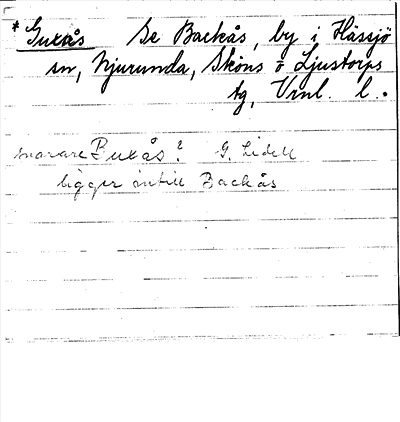 *Guxås Se Backås, by i Hässjö
sn, Njurunda, Sköns o Ljustorps
tg, Vrnl. l.
snarare Buxås? G. Lidell
ligger intill Backås